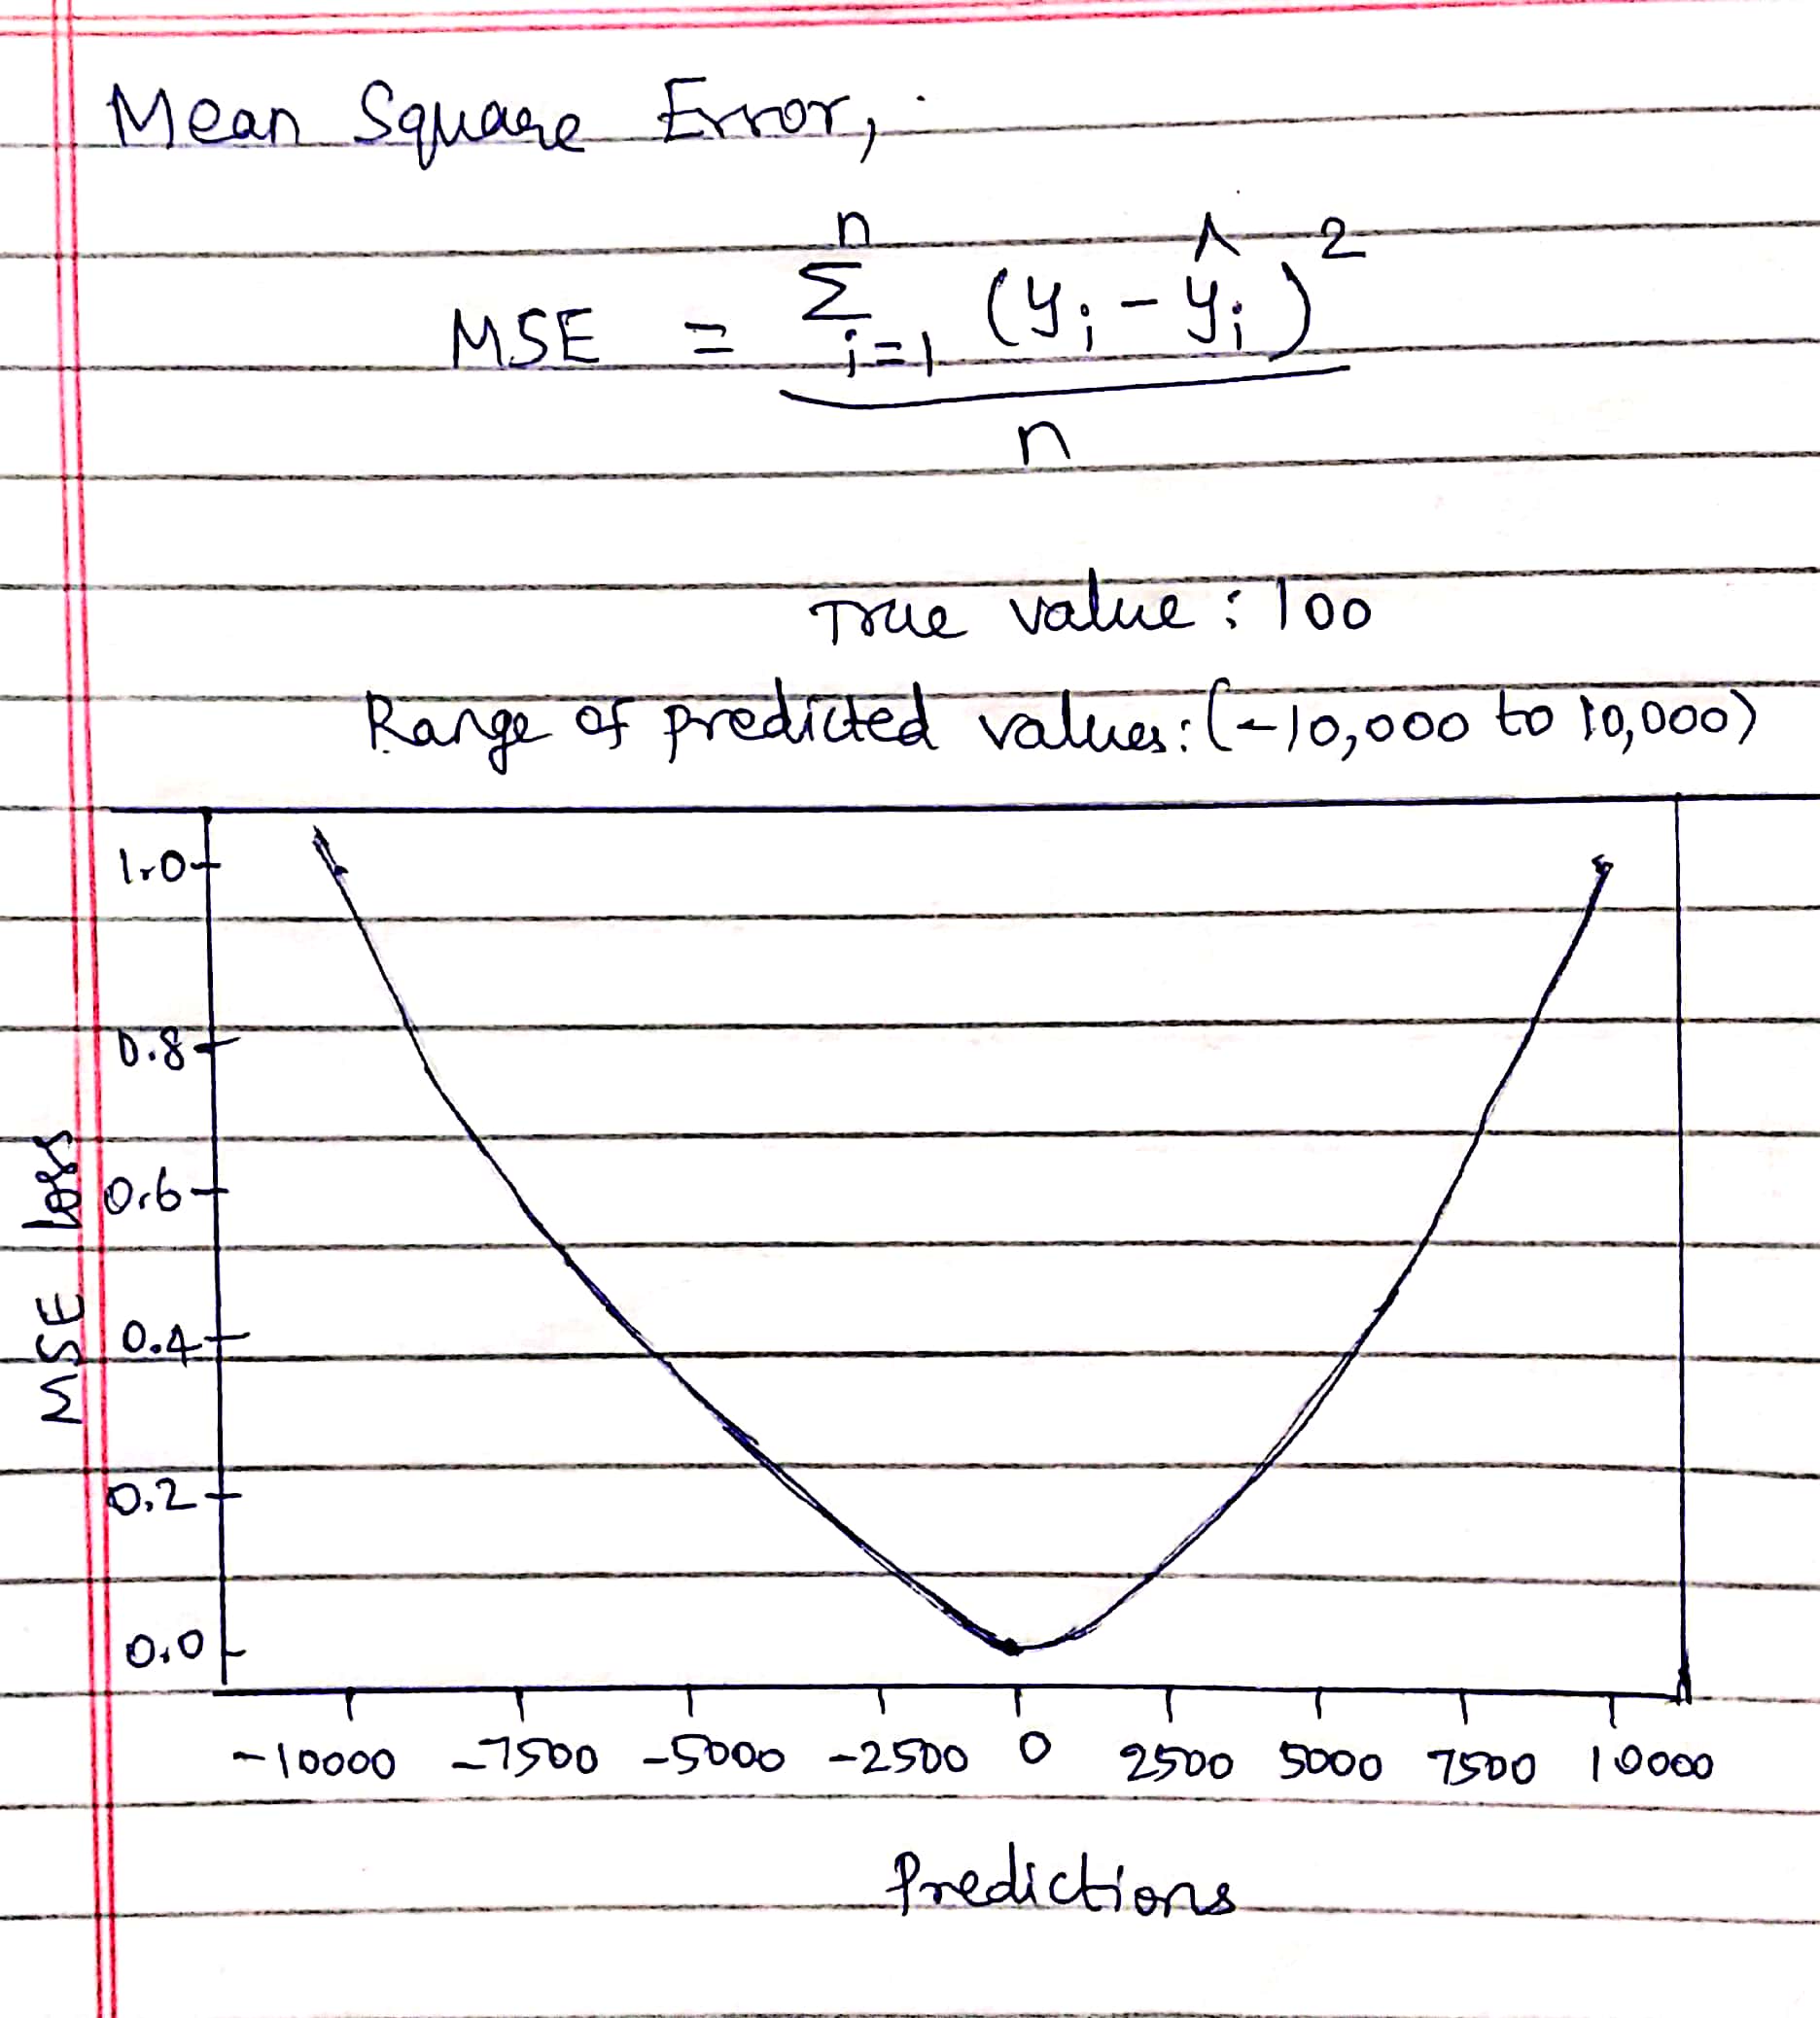 Mean Square Error,
MSE = \frac{\sum_{i=1}^{n} (y_i - \hat{y}_i)^2}{n}
True value : 100
Range of predicted values: (-10,000 to 10,000)
1.0
0.8
0.6
0.4
0.2
0.0
MSE loss
-10000 -7500 -5000 -2500 0 2500 5000 7500 10000
Predictions